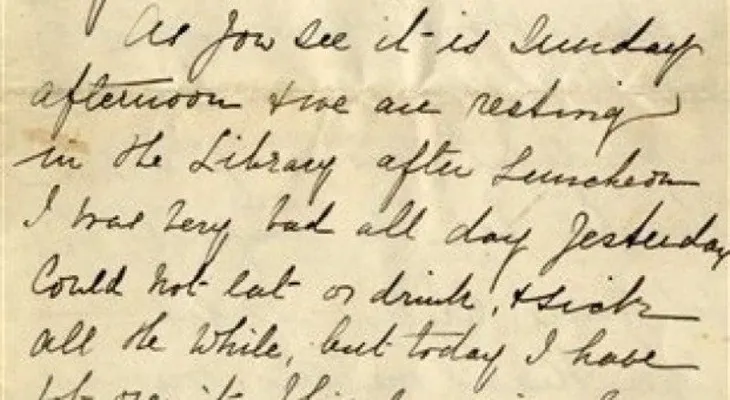 As you see it is Sunday
afternoon & we are resting
in the Library after Luncheon
I was very bad all day Yesterday
Could not eat or drink, & sick
all the While, but today I have